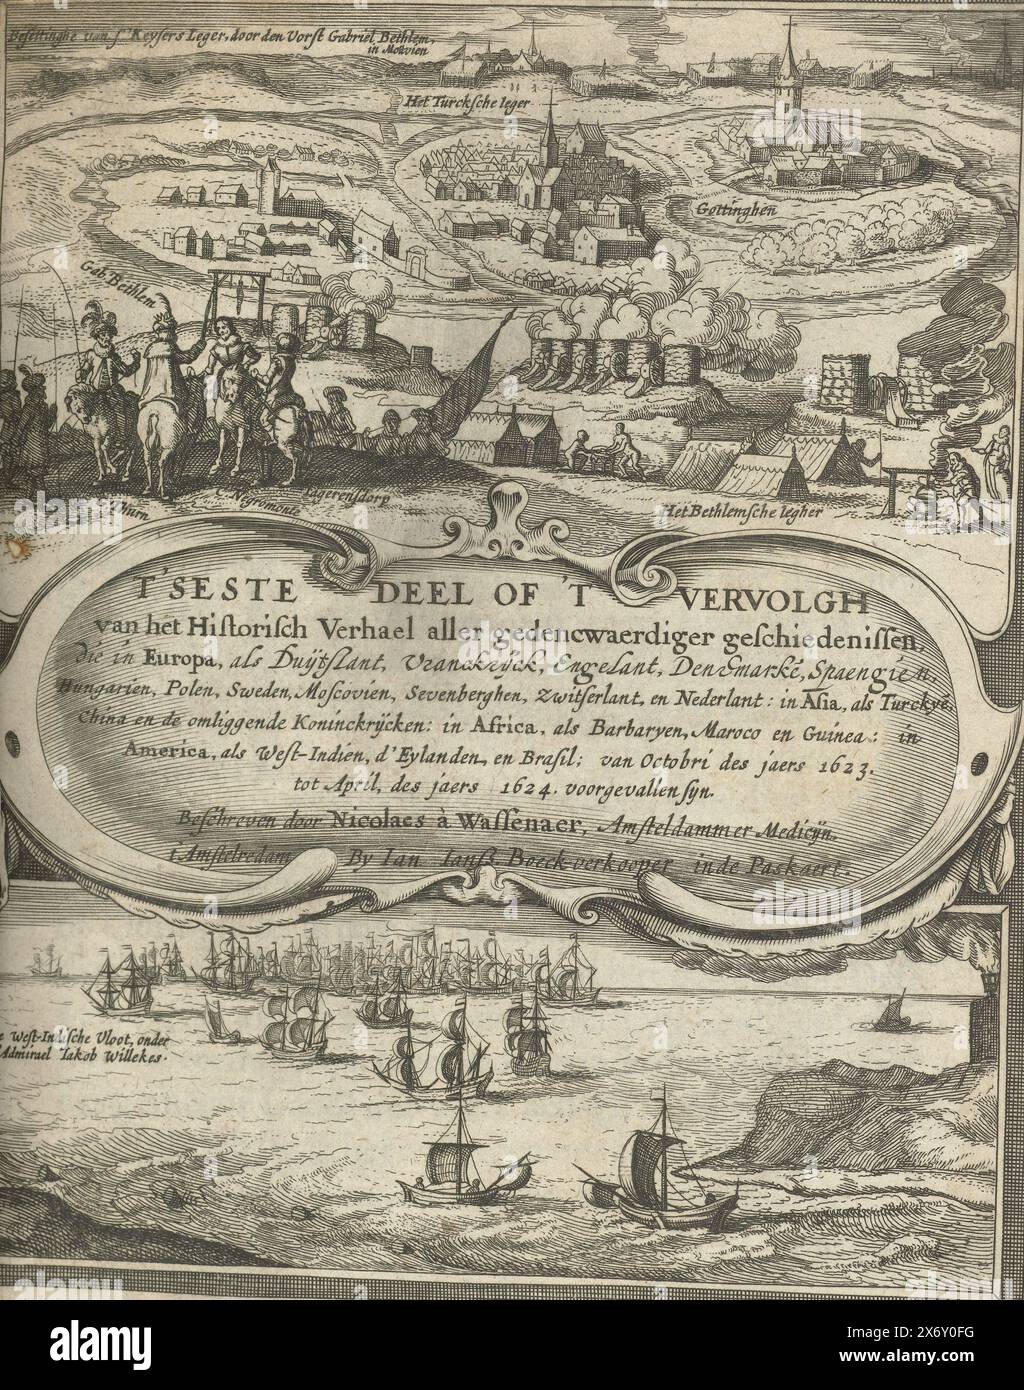 Besettinghe van s' Keysers Leger, door den Vorst Gabriel Bethlem,
in Moravien
Het Turcksche leger
Gottinghen
Gab. Bethlem
Thurn
C. Negromonte
Iagerensdorp
Het Bethlemsche legher
T'SESTE DEEL OF 'T VERVOLGH
van het Historisch Verhael aller gedencwaerdiger geschiedenissen,
die in Europa, als Duÿtslant, Vranckrÿck, Engelant, Denemarke, Spaengien,
Hungarien, Polen, Sweden, Moscovien, Sevenberghen, Zwitserlant, en Nederlant: in Asia, als Turckye,
China en de omliggende Koninckrÿcken: in Africa, als Barbaryen, Maroco en Guinea: in
America, als West-Indien, d'Eylanden, en Brasil; van Octobri des jaers 1623.
tot April, des jaers 1624. voorgevallen syn.
Beschreven door Nicolaes à Wassenaer, Amsteldammer Medicÿn.
t'Amstelredam By Ian Ianß. Boeck-verkooper in de Paskaert.
West-Indische Vloot, onder
Admirael Iakob Willekes.
alamy
alamy
alamy
Image ID: 2X6Y0FG
www.alamy.com